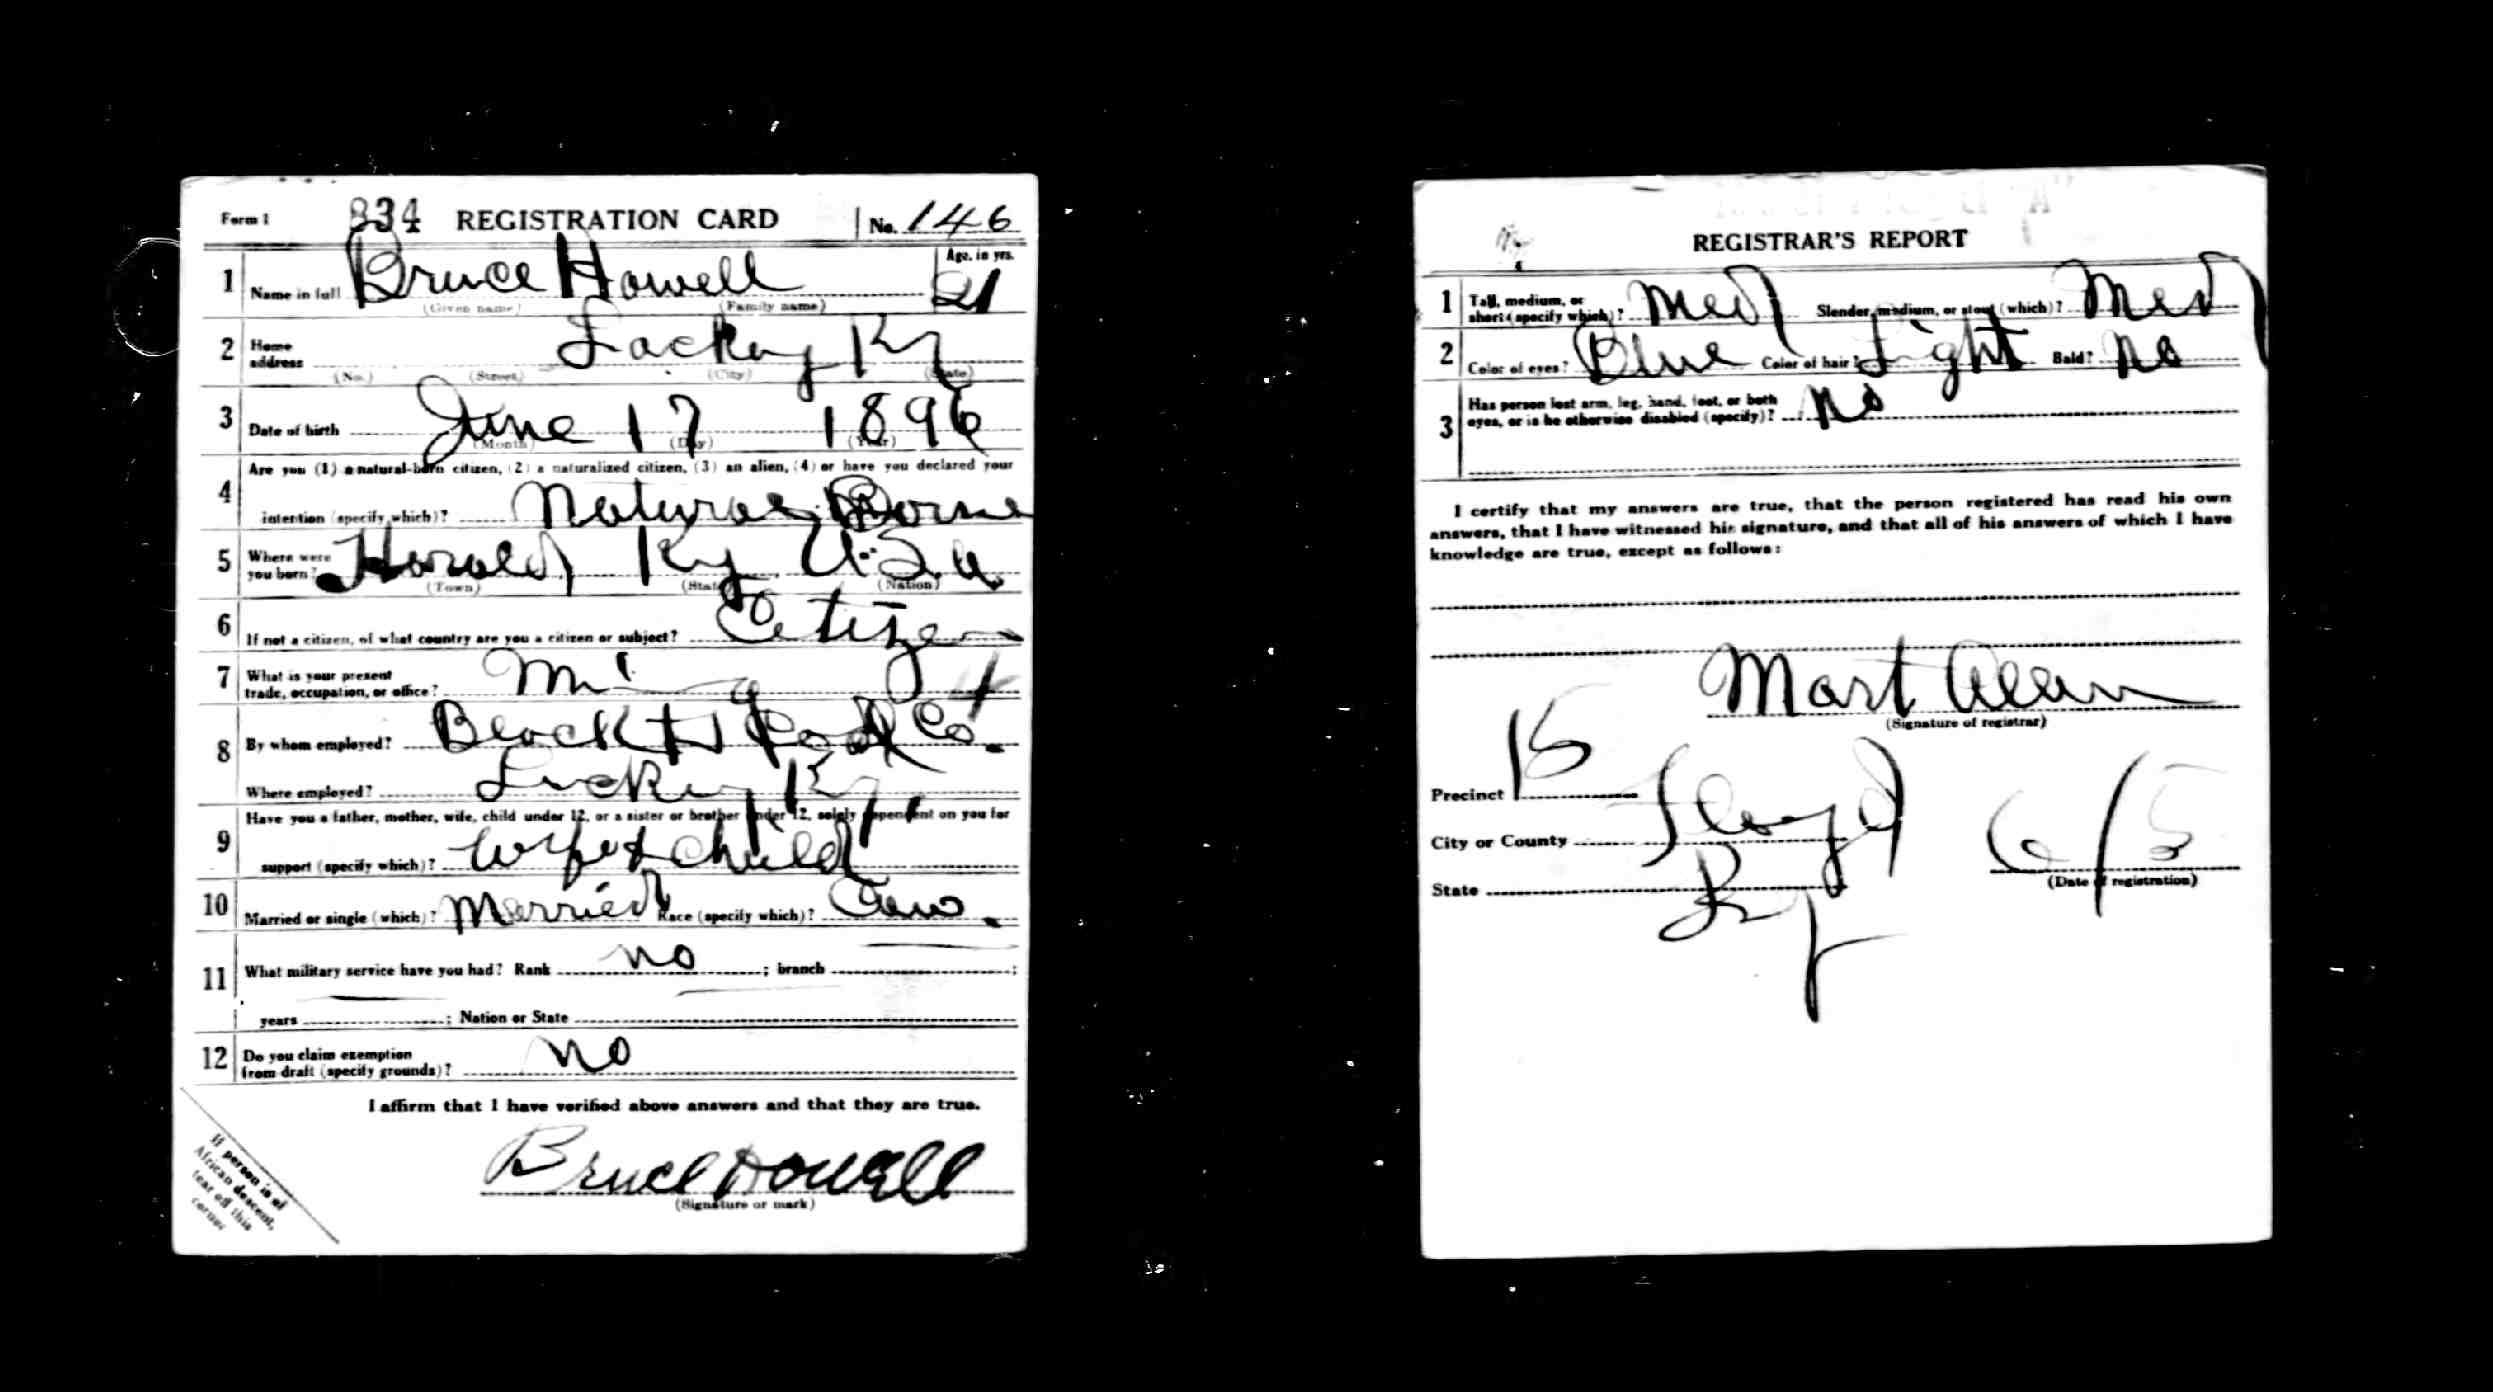 Form 1 834 REGISTRATION CARD No. 146
1 Name in full Bruce Howell Age, in yrs. 21
(Given name) (Family name)
2 Home address Lackey Ky
(No.) (Street) (City) (State)
3 Date of birth June 17 1896
(Month) (Day) (Year)
Are you (1) a natural-born citizen, (2) a naturalized citizen, (3) an alien, (4) or have you declared your
4 intention (specify which)? Natural Borne
5 Where were you born? Harold Ky U.S.A
(Town) (State) (Nation)
6 If not a citizen, of what country are you a citizen or subject? Citizen
7 What is your present trade, occupation, or office? Mining
8 By whom employed? Co.
Where employed? Lackey Ky
Have you a father, mother, wife, child under 12, or a sister or brother under 12, solely dependent on you for
9 support (specify which)? Wife & child
10 Married or single (which)? Married Race (specify which)? Caus.
11 What military service have you had? Rank no ; branch ;
years ; Nation or State
12 Do you claim exemption from draft (specify grounds)? no
I affirm that I have verified above answers and that they are true.
Bruce Howell
(Signature or mark)
If person is of
African descent,
tear off this
corner
REGISTRAR'S REPORT
1 Tall, medium, or short (specify which)? Med Slender, medium, or stout (which)? Med
2 Color of eyes? Blue Color of hair? Light Bald? No
3 Has person lost arm, leg, hand, foot, or both
eyes, or is he otherwise disabled (specify)? No
I certify that my answers are true, that the person registered has read his own
answers, that I have witnessed his signature, and that all of his answers of which I have
knowledge are true, except as follows:
Mart
(Signature of registrar)
Precinct 15
City or County Floyd
State Ky
6/5
(Date of registration)